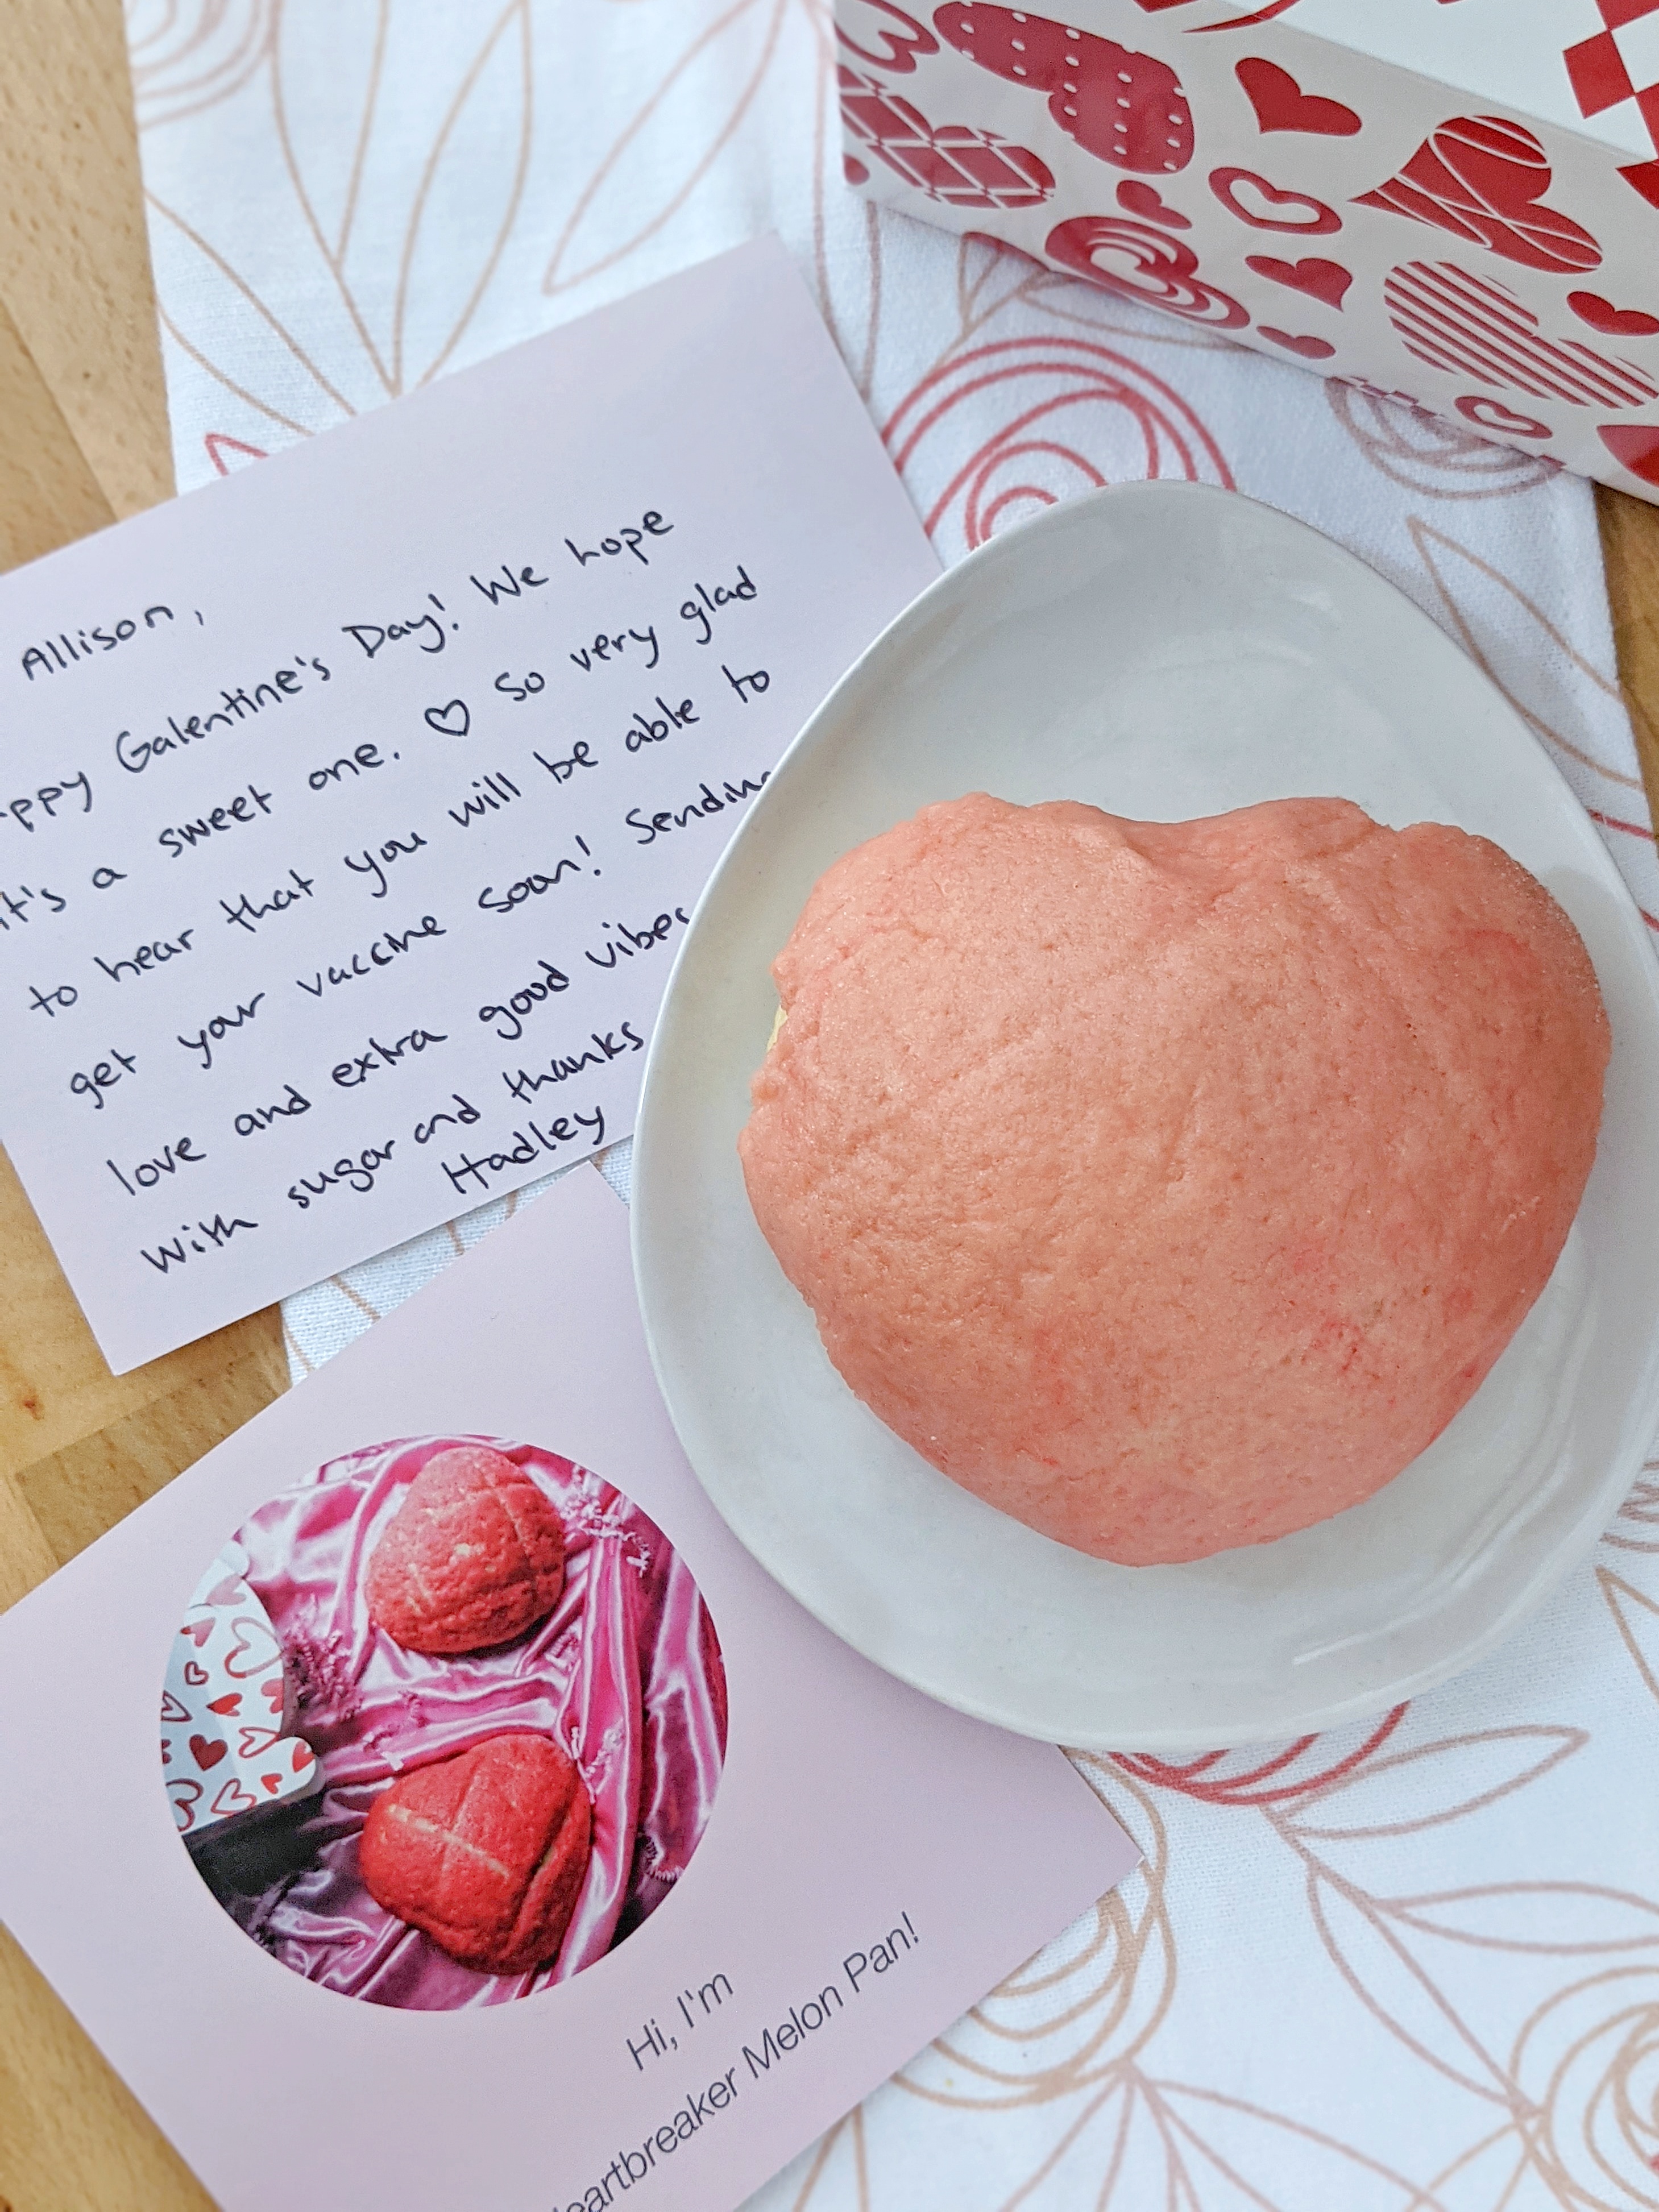 Allison,
ppy Galentine's Day! We hope
it's a sweet one. ♡ So very glad
to hear that you will be able to
get your vaccine soon! Sendin
love and extra good vibes
With sugar and thanks
Hadley
Hi, I'm
eartbreaker Melon Pan!